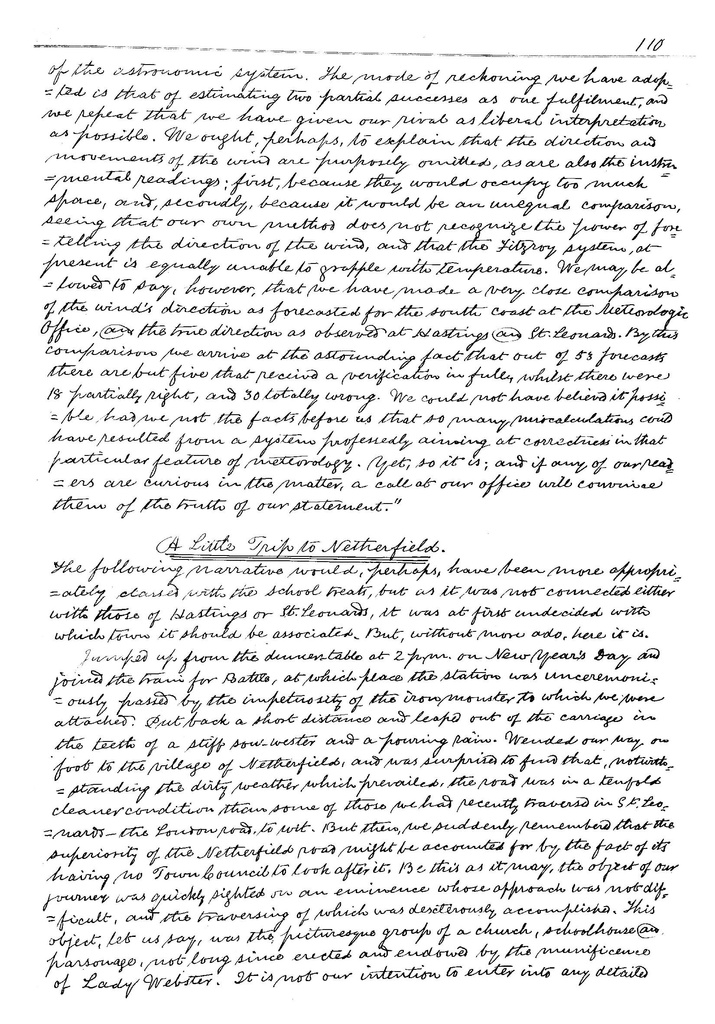 110
of the astronomic system. The mode of reckoning we have adop-
=ted is that of estimating two partial successes as one fulfilment, and
we repeat that we have given our rival as liberal interpretation
as possible. We ought, perhaps, to explain that the direction and
movements of the wind are purposely omitted, as are also the instru
=mental readings; first, because they would occupy too much
space, and, secondly, because it would be an unequal comparison,
seeing that our own method does not recognize the power of fore=
=telling the direction of the wind, and that the Fitzroy system, at
present is equally unable to grapple with temperature. We may be al=
=lowed to say, however, that we have made a very close comparison
of the wind's direction as forecasted for the south coast at the Meteorologic
Office, and the true direction as observed at Hastings and St. Leonards. By this
comparison we arrive at the astounding fact that out of 53 forecasts
there are but five that receive a verification in full, whilst there were
18 partially right, and 30 totally wrong. We could not have believed it possi
=ble had we not the facts before us that so many miscalculations could
have resulted from a system professedly aiming at correctness in that
particular feature of meteorology. Yet, so it is; and if any of our read
=ers are curious in the matter, a call at our office will convince
them of the truth of our statement."
A Little Trip to Netherfield.
The following narrative would, perhaps, have been more appropri=
=ately classed with the school treats, but as it was not connected either
with those of Hastings or St. Leonards, it was at first undecided with
which town it should be associated. But, without more ado, here it is.
Jumped up from the dinner table at 2 p.m. on New Year's Day and
joined the train for Battle, at which place the station was unceremoni=
=ously passed by the impetuosity of the iron monster to which we were
attached. But back a short distance and leaped out of the carriage in
the teeth of a stiff sou-wester and a pouring rain. Wended our way on
foot to the village of Netherfield, and was surprised to find that, notwith=
=standing the dirty weather which prevailed, the road was in a tenfold
cleaner condition than some of those we had recently traversed in St. Leo=
=nards – the London road, to wit. But then, we suddenly remembered that the
superiority of the Netherfield road might be accounted for by the fact of its
having no Town Council to look after it. Be this as it may, the object of our
journey was quickly sighted on an eminence whose approach was not dif=
=ficult, and the traversing of which was dexterously accomplished. This
object, let us say, was the picturesque group of a church, schoolhouse and
parsonage, not long since erected and endowed by the munificence
of Lady Webster. It is not our intention to enter into any detailed